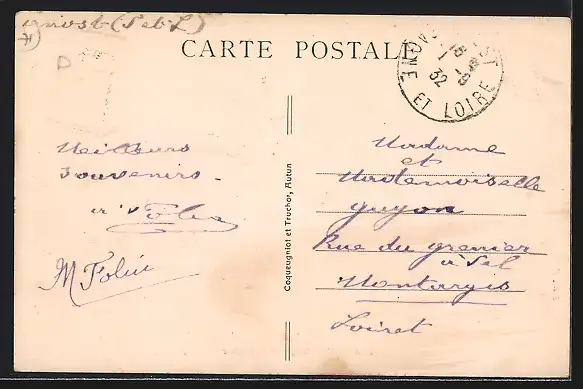 CARTE POSTALE
18 - 8
1 - 8
32
NE ET LOIRE
Meilleurs
souvenirs -
M Folin
Coqueugniot et Truchot, Autun
Madame
et
Mademoiselle
Guyon
Rue du grenier
à Sel
Montargis
Loiret